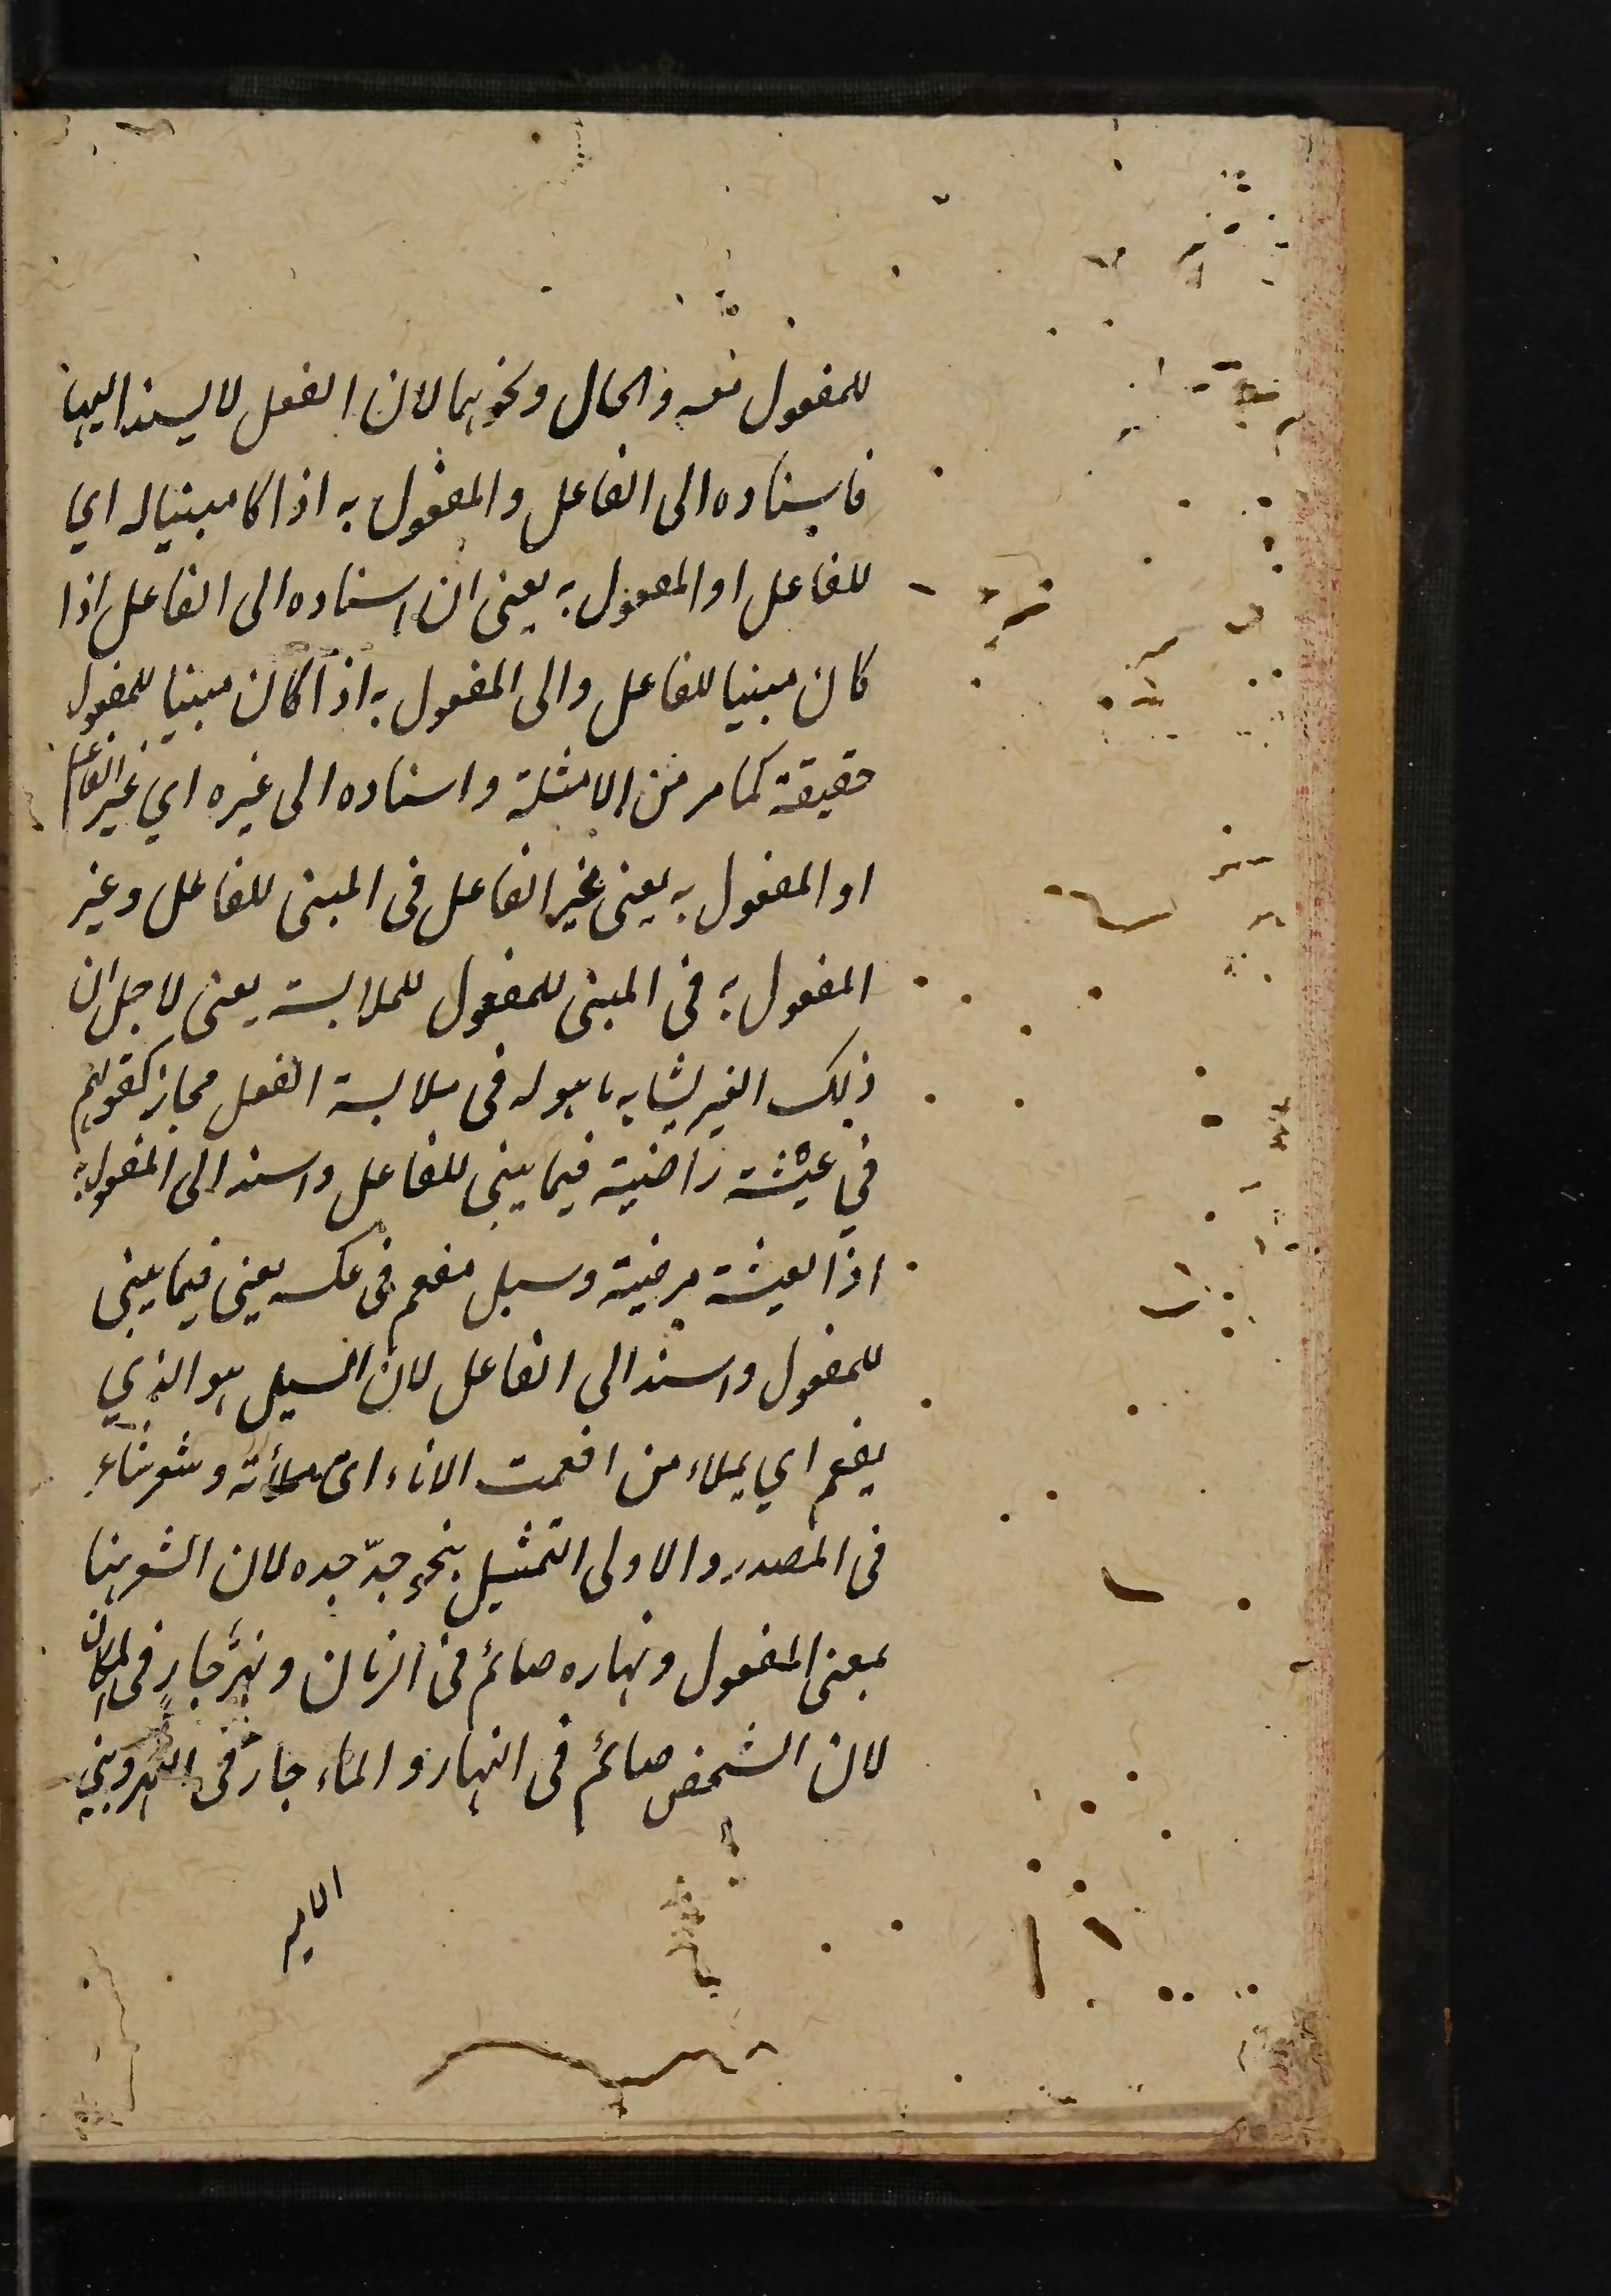 للمفعول معه والحال ونحوهما لان الفعل لا يسند اليها
فاسناده الى الفاعل والمفعول به اذا كا مبنيا له اي
للفاعل او المفعول به يعنى ان اسناده الى الفاعل اذا
كان مبنيا للفاعل والى المفعول به اذا كان مبنيا للمفعول
حقيقة كما مر من الامثلة واسناده الى غيره اي غير الفاعل
او المفعول به يعنى غير الفاعل فى المبنى للفاعل وغير
المفعول به فى المبنى للمفعول للملابسة يعنى لاجل ان
ذلك الغير يشابه ما هو له فى ملابسة الفعل مجاز كقولهم
في عيشة راضية فيما بنى للفاعل واسند الى المفعول به
اذ العيشة مرضية وسيل مفعم فى عكسه يعنى فيما بنى
للمفعول واسند الى الفاعل لان السيل هو الذي
يفعم اي يملاء من افعمت الاناء اى ملأته وشعر شاعر
فى المصدر والاولى التمثيل بنحو جدّ جده لان الشعر هنا
بمعنى المفعول ونهاره صائم فى الزمان ونهر جار فى المكان
لان الشخص صائم فى النهار والماء جار فى النهر وبنى
الامير